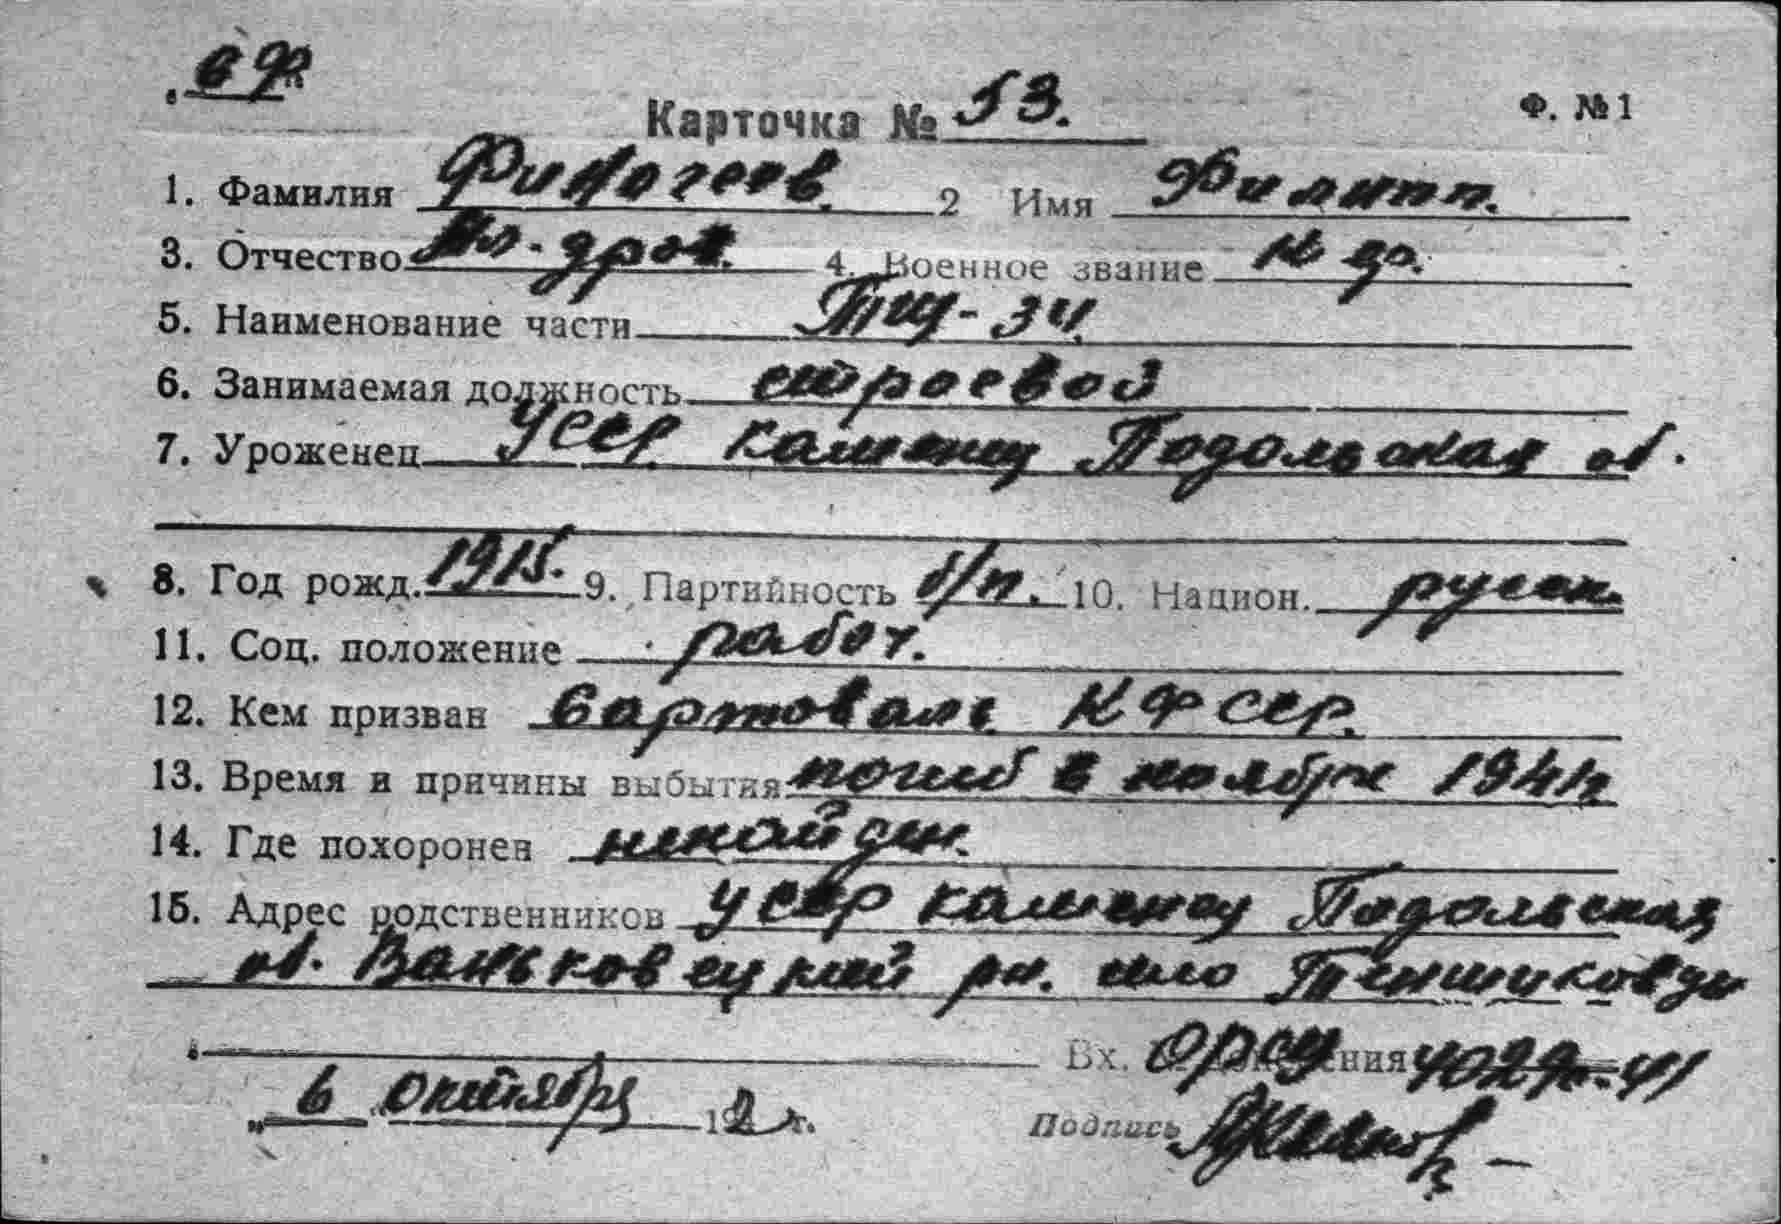 "6 Ф"
Карточка № 53. Ф. №1
1. Фамилия Финогеев. 2 Имя Филипп.
3. Отчество 4. Военное звание к/ф.
5. Наименование части
6. Занимаемая должность строевой
7. Уроженец УССР Каменец Подольская об.
8. Год рожд. 1915. 9. Партийность б/п. 10. Национ. русск.
11. Соц. положение рабоч.
12. Кем призван Сартоваль КФССР.
13. Время и причины выбытия погиб в ноябре 1941г.
14. Где похоронен ненайден.
15. Адрес родственников УССР Каменец Подольская
об. Ваньковецкий рн. село
Вх.
„6 октября 192 г. Подпись